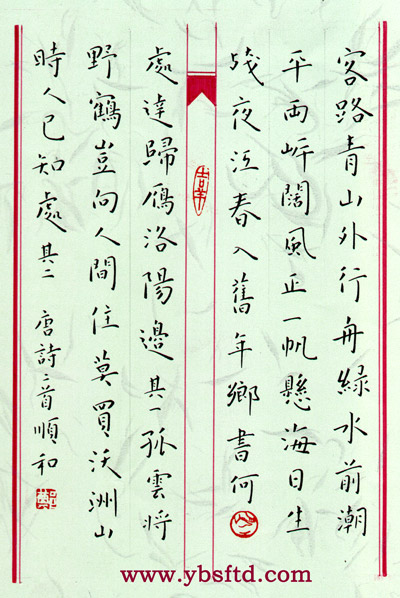 客路青山外行舟綠水前潮
平兩岸闊風正一帆懸海日生
殘夜江春入舊年鄉書何
吉羊
處達歸雁洛陽邊其一孤雲將
野鶴豈向人間住莫買沃洲山
時人已知處其二 唐詩二首順和
www.ybsftd.com